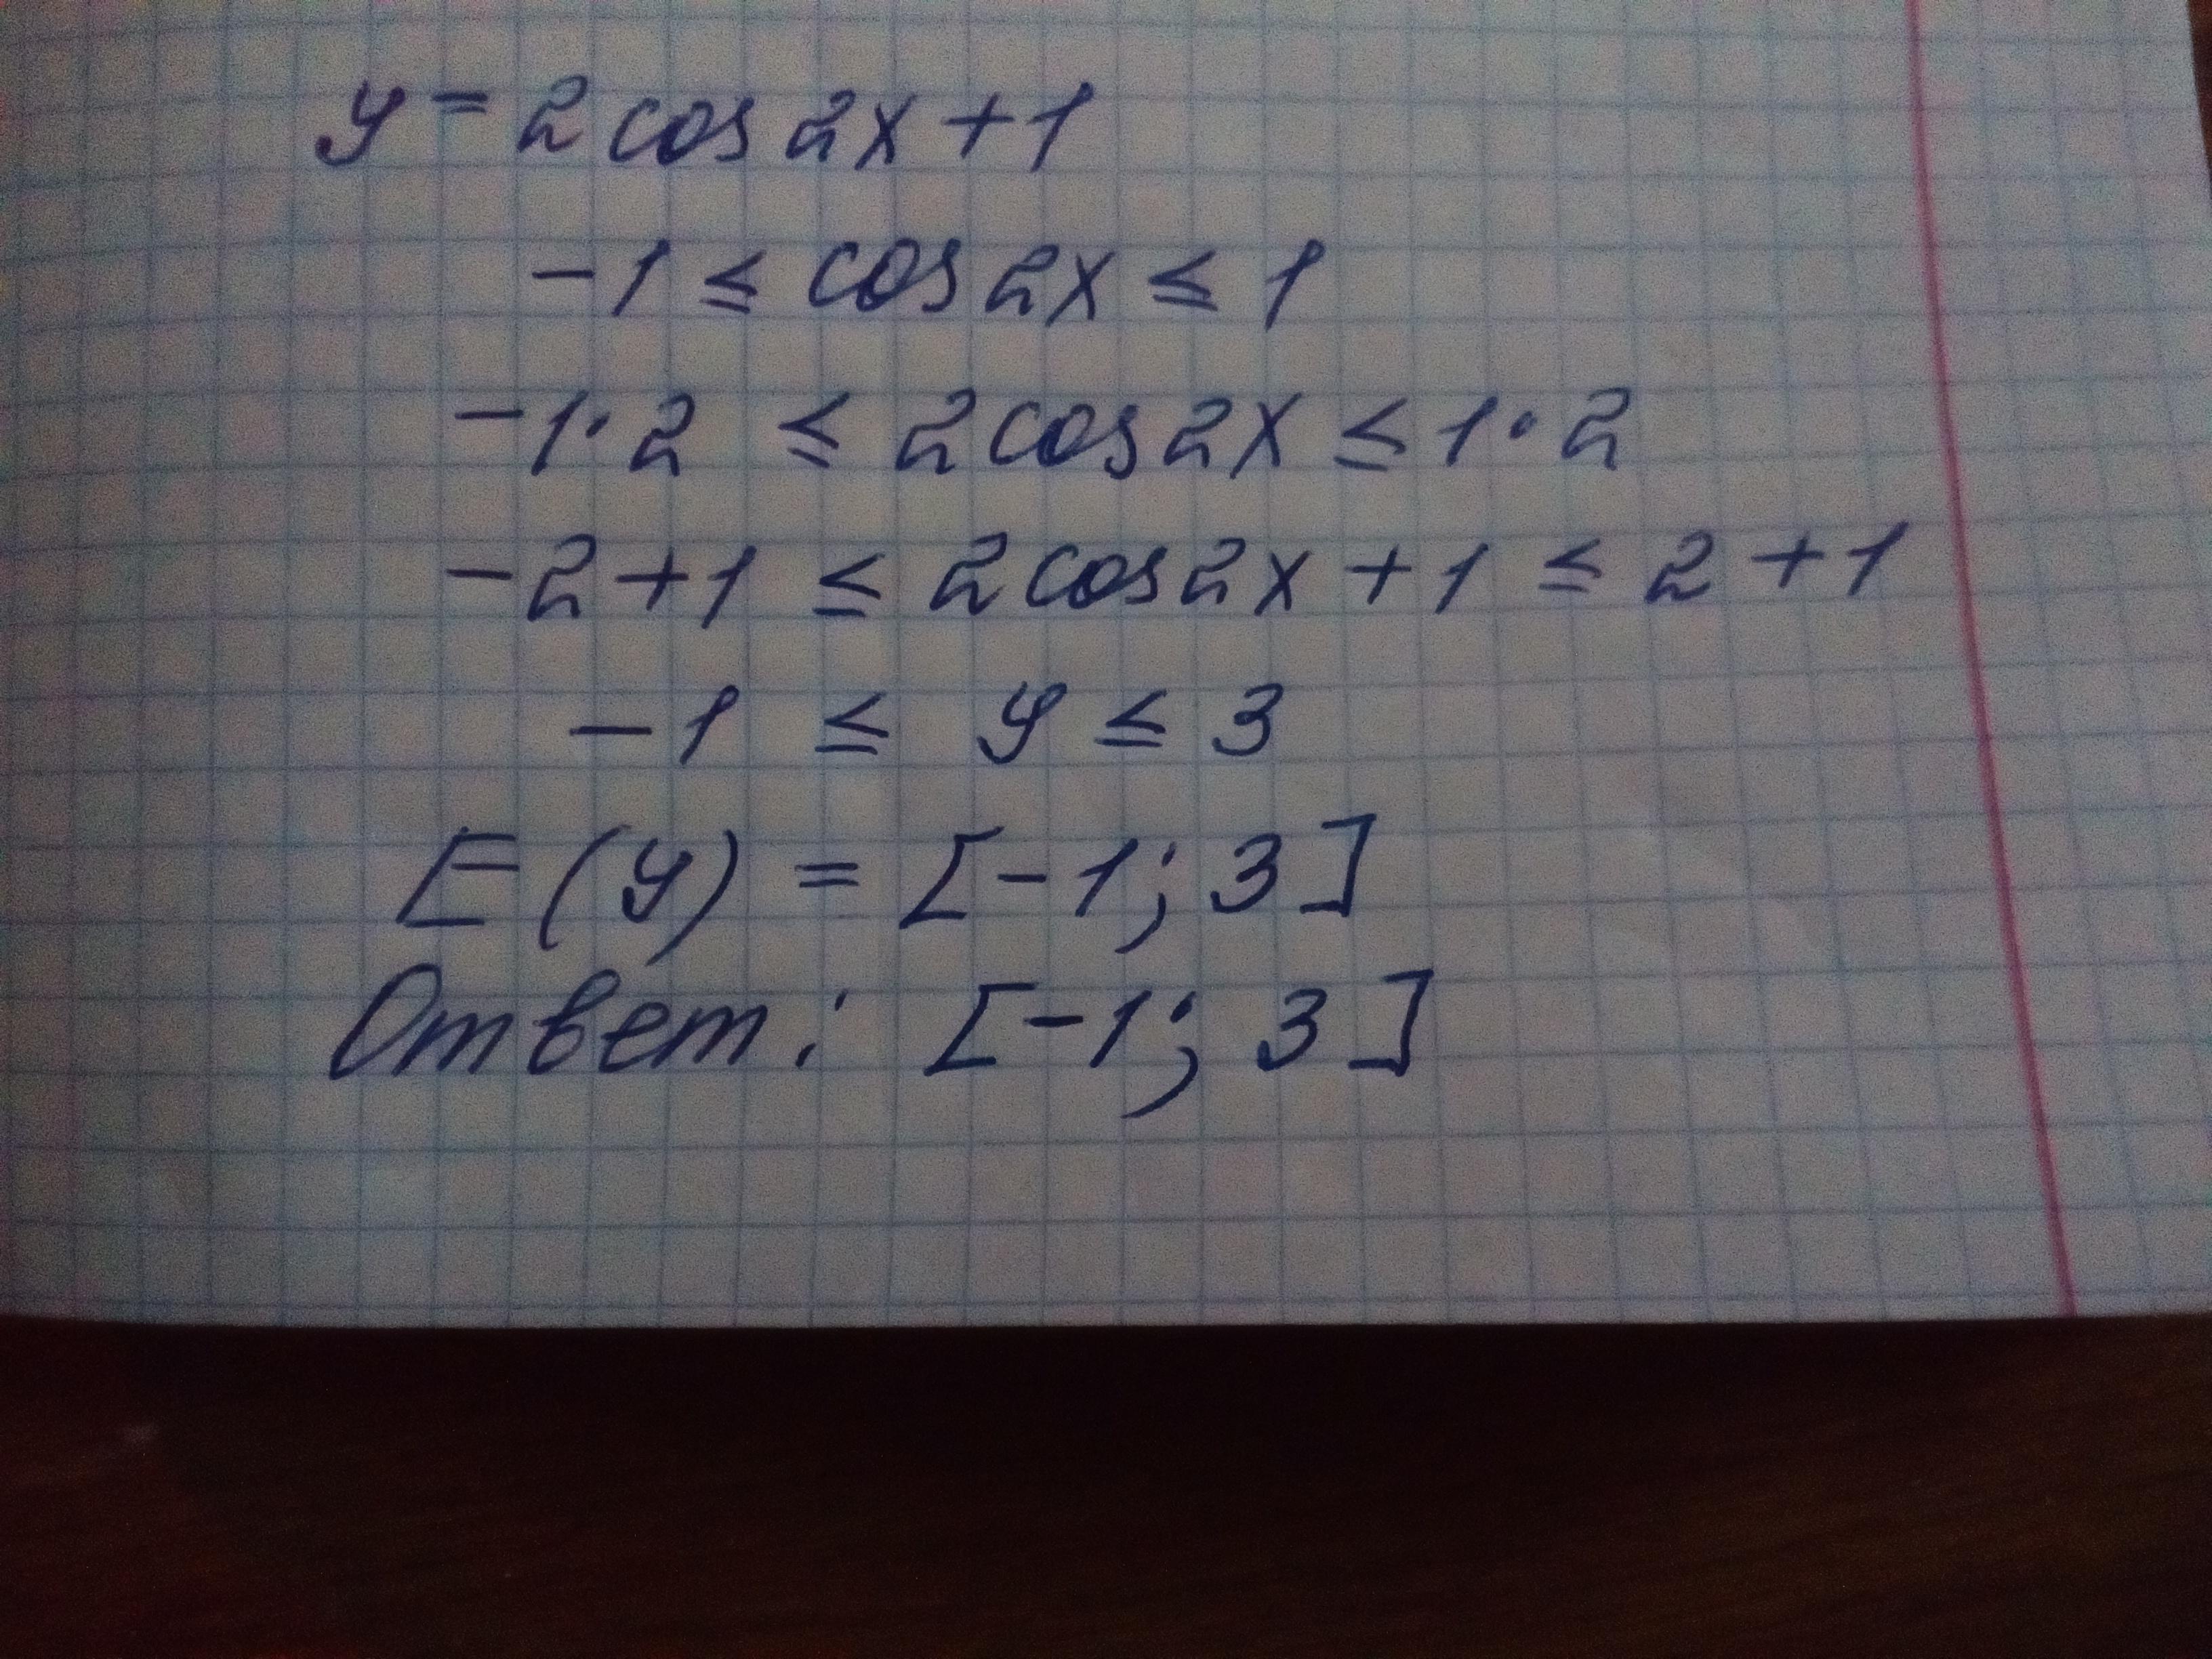 y = 2 cos 2x + 1
-1 ≤ cos 2x ≤ 1
-1 · 2 ≤ 2 cos 2x ≤ 1 · 2
-2 + 1 ≤ 2 cos 2x + 1 ≤ 2 + 1
-1 ≤ y ≤ 3
E (y) = [-1; 3]
Ответ: [-1; 3]